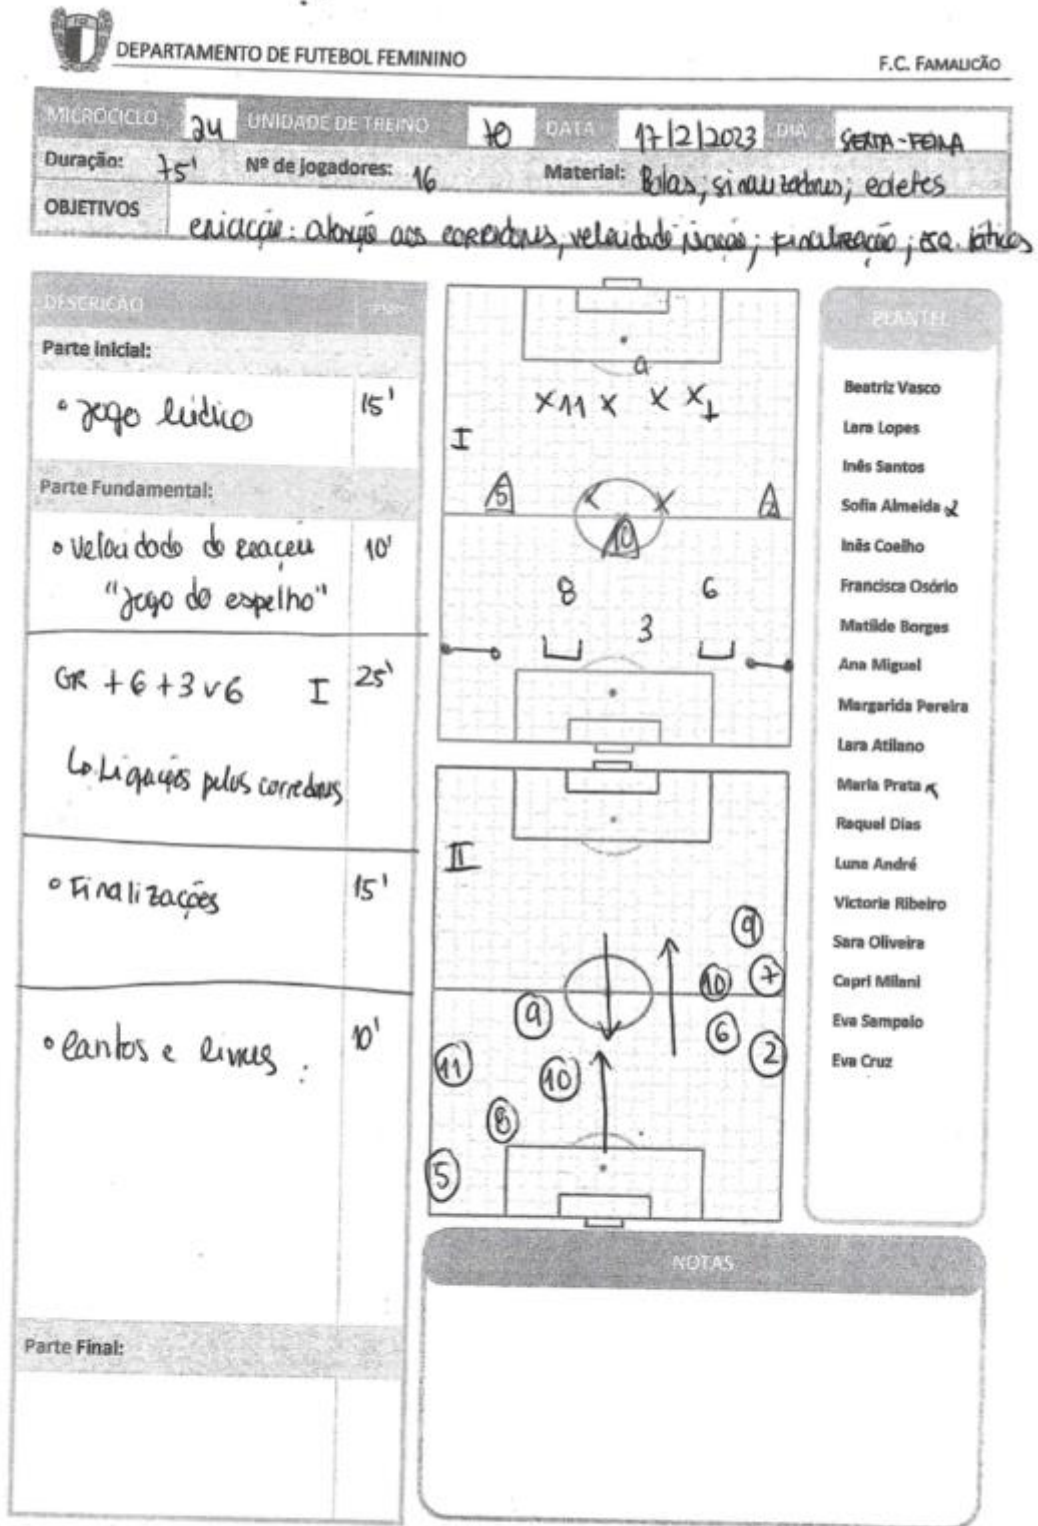 DEPARTAMENTO DE FUTEBOL FEMININO
F.C. FAMALICÃO
MICROCICLO 24 UNIDADE DE TREINO 70 DATA 17/2/2023 DIA SEXTA-FEIRA
Duração: 75' Nº de jogadores: 16 Material: Bolas; sinalizadores; coletes
OBJETIVOS
criação: atenção aos corredores, velocidade reação; finalização; esq. táticos
DESCRIÇÃO
Parte Inicial:
• Jogo lúdico 15'
Parte Fundamental:
• Velocidade de reação 10'
"Jogo do espelho"
GR + 6 + 3 v 6 I 25'
Ligações pelos corredores
• Finalizações 15'
• Cantos e livres: 10'
Parte Final:
I
9
X 11 X X X 7
5
X
2
10
8 6
3
II
9
10 7
9 6
11 10 2
8
5
PLANTEL
Beatriz Vasco
Lara Lopes
Inês Santos
Sofia Almeida
Inês Coelho
Francisca Osório
Matilde Borges
Ana Miguel
Margarida Pereira
Lara Atilano
Maria Prata
Raquel Dias
Luna André
Victoria Ribeiro
Sara Oliveira
Capri Milani
Eva Sampaio
Eva Cruz
NOTAS